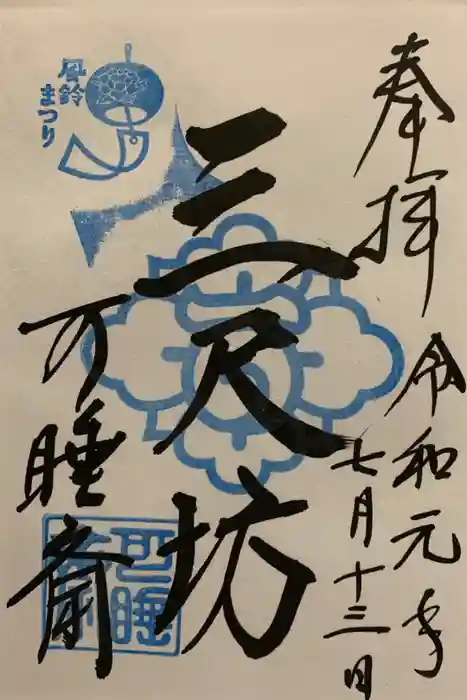 奉拝
令和元年
七月十三日
三尺坊
可睡斎
風鈴
まつり
可睡